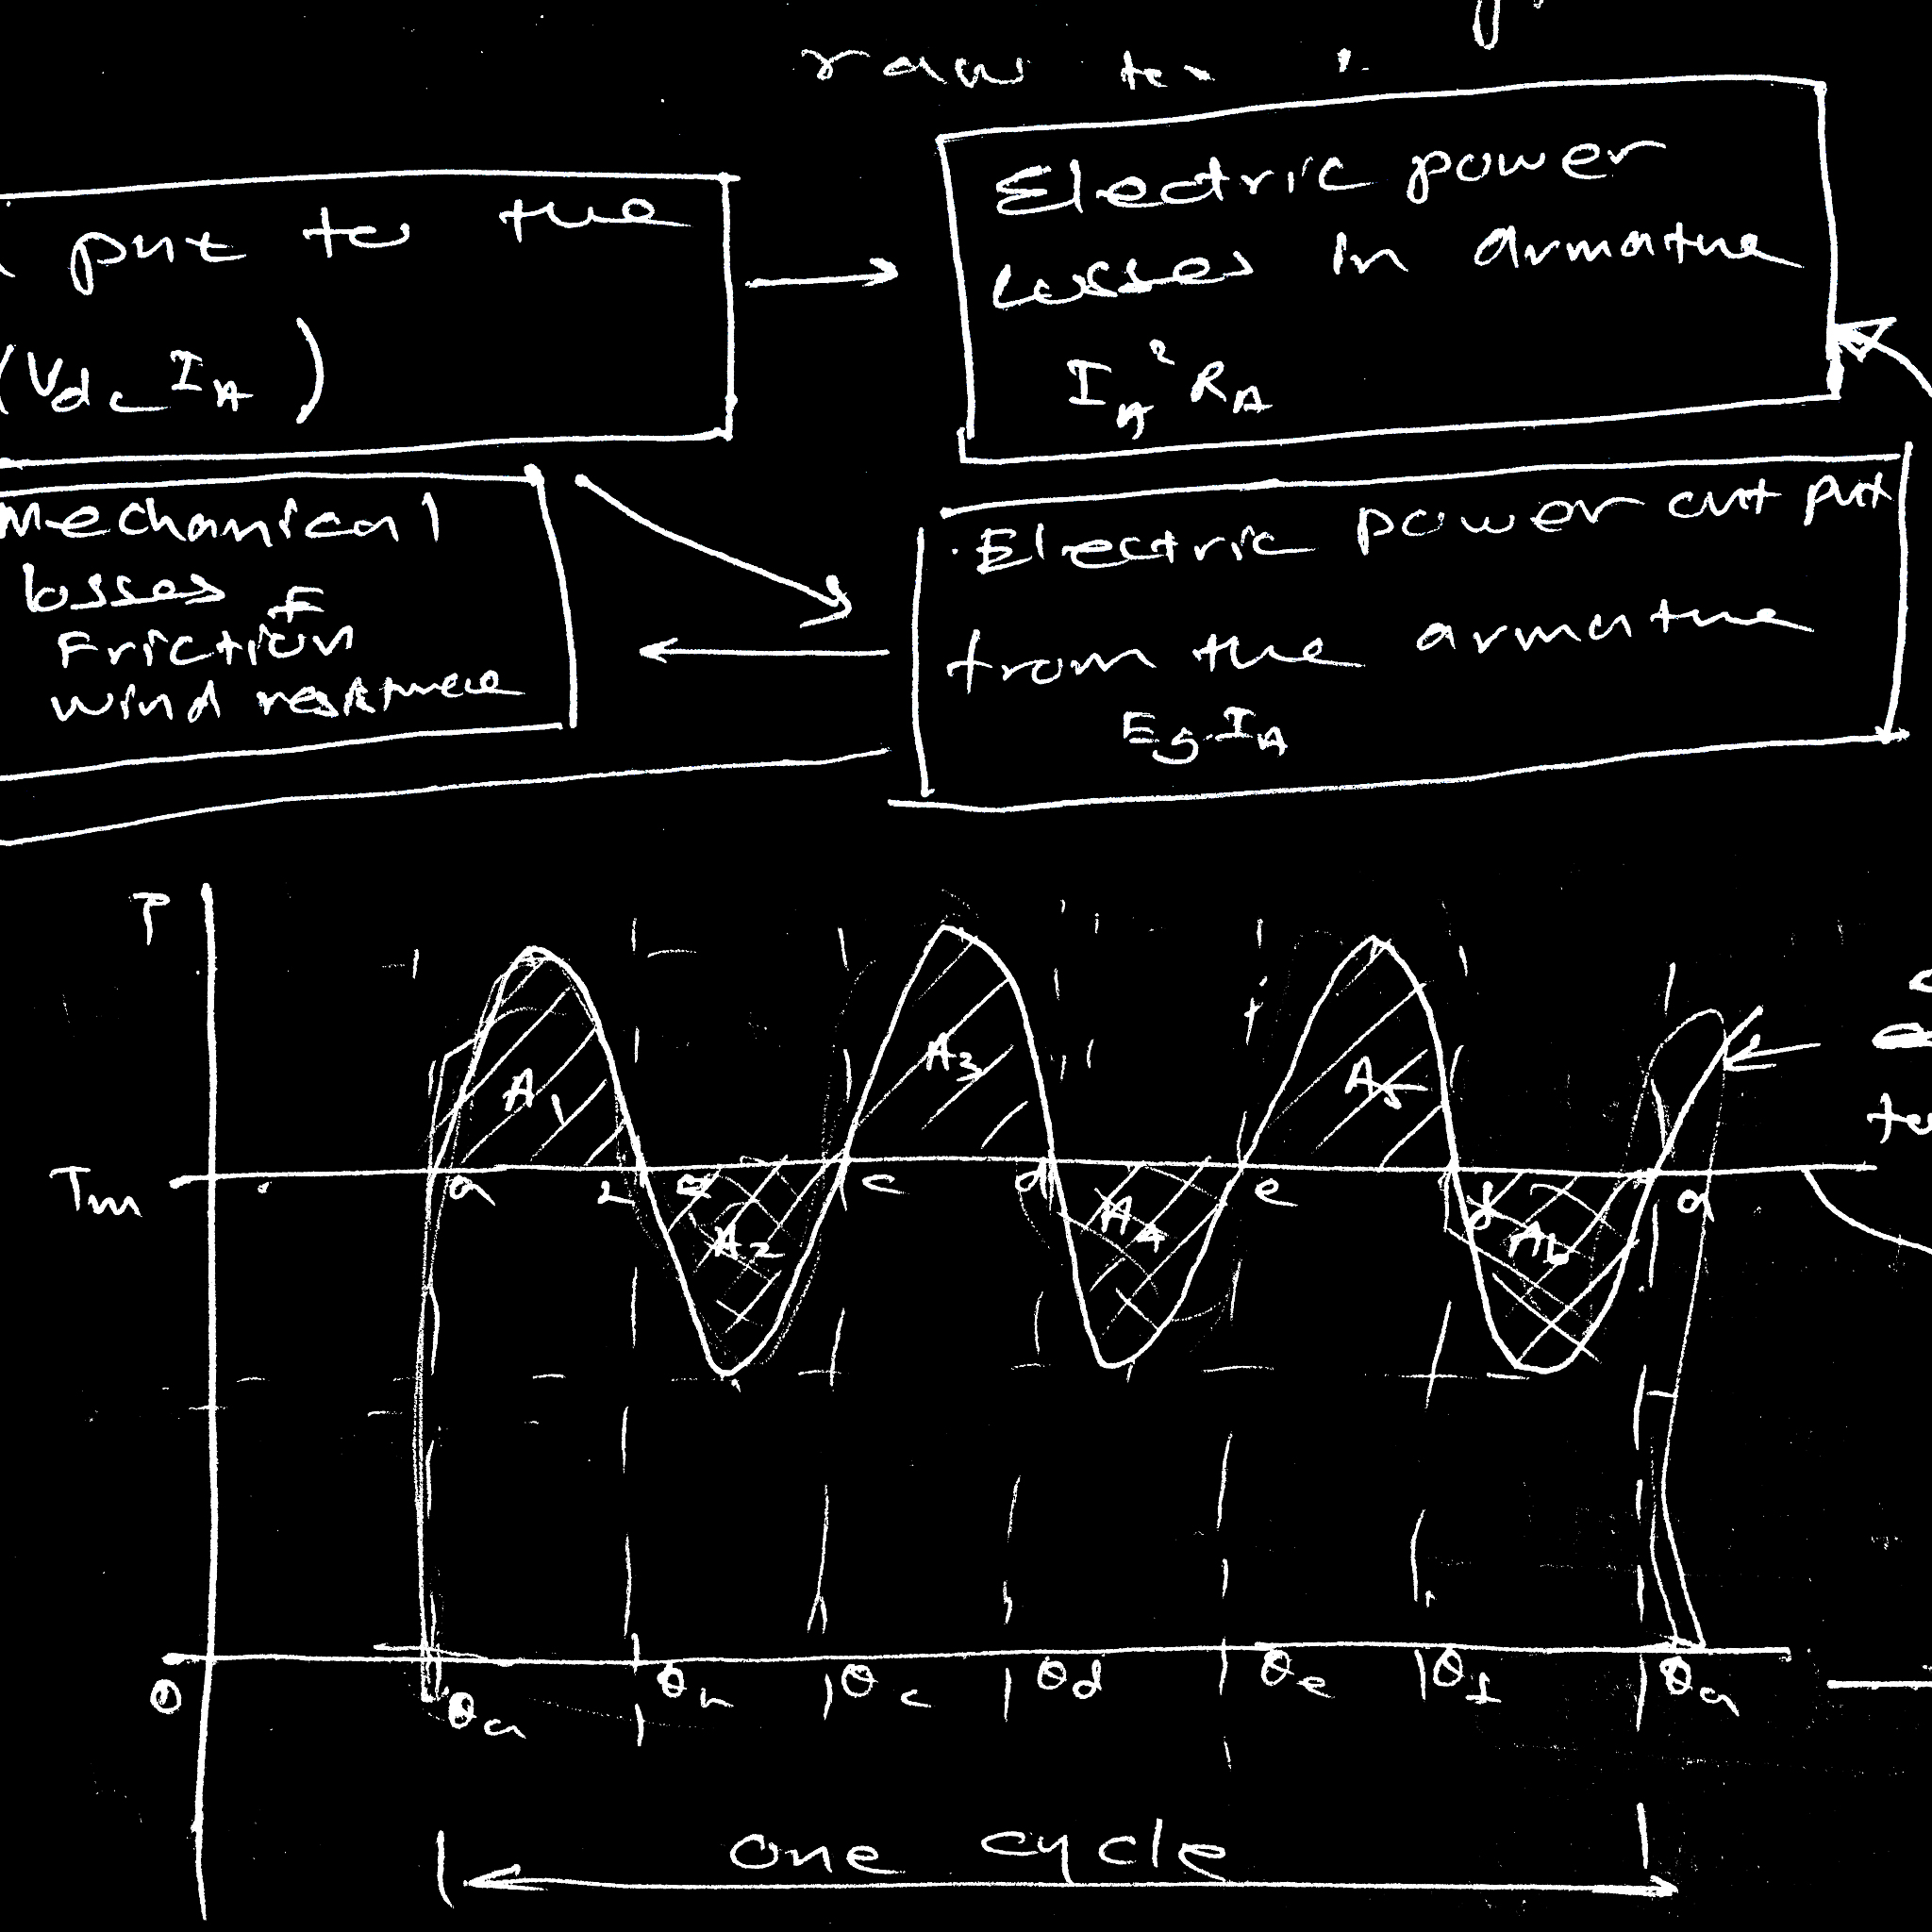 raw
put to the
(Vdc IA)
Electric power
losses in armature
IA² RA
Mechanical
losses
Friction
wind resistance
Electric power output
from the armature
Eg. IA
T
Tm
A1
A2
A3
A4
A5
A6
a
c
d
e
f
a
0
θa
θb
θc
θd
θe
θf
θa
one cycle